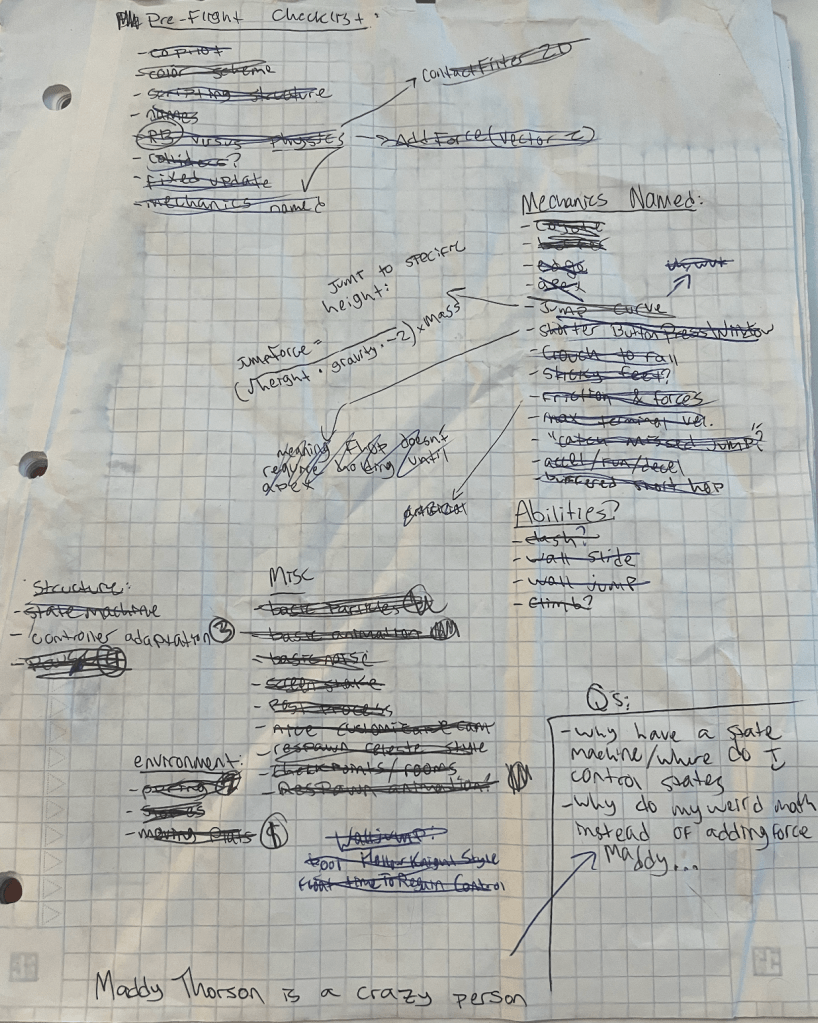 Pre-Flight Checklist:
- copilot
- color scheme
- scripting structure
- names
- RB versus physics
- colliders?
- fixed update
- mechanics named
ContactFilter 2D
AddForce(vector 2)
Mechanics Named:
- coyote
- edge
- apex
- Jump curve
- shorter ButtonPressWindow
- Crouch to fall
- sticky feet?
- Friction & forces
- max terminal vel.
- "catch missed jump"?
- accel/run/decel
- buffered short hop
Jump to specific
height:
jumpForce =
(√height · gravity · -2) × mass
meaning doesn't
require moving until
apex
Abilities?
- dash?
- wall slide
- wall jump
- climb?
Structure:
- state machine
- controller adaptation 3
Misc
- basic particles
- basic animation
- basic noise
- screen shake
- Post process
- respawn celeste style
- checkpoints/rooms
- Respawn animation!
environment:
- moving plats
Walljump:
Hollow Knight Style
time To Regain Control
Qs:
- why have a state
machine/where do I
control states
- why do my weird math
instead of adding force
Maddy...
Maddy Thorson is a crazy person